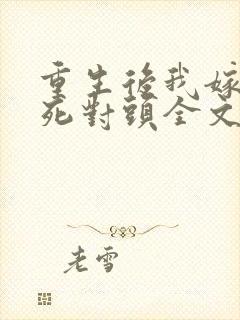 重生後我嫁
死對頭全文
老雪